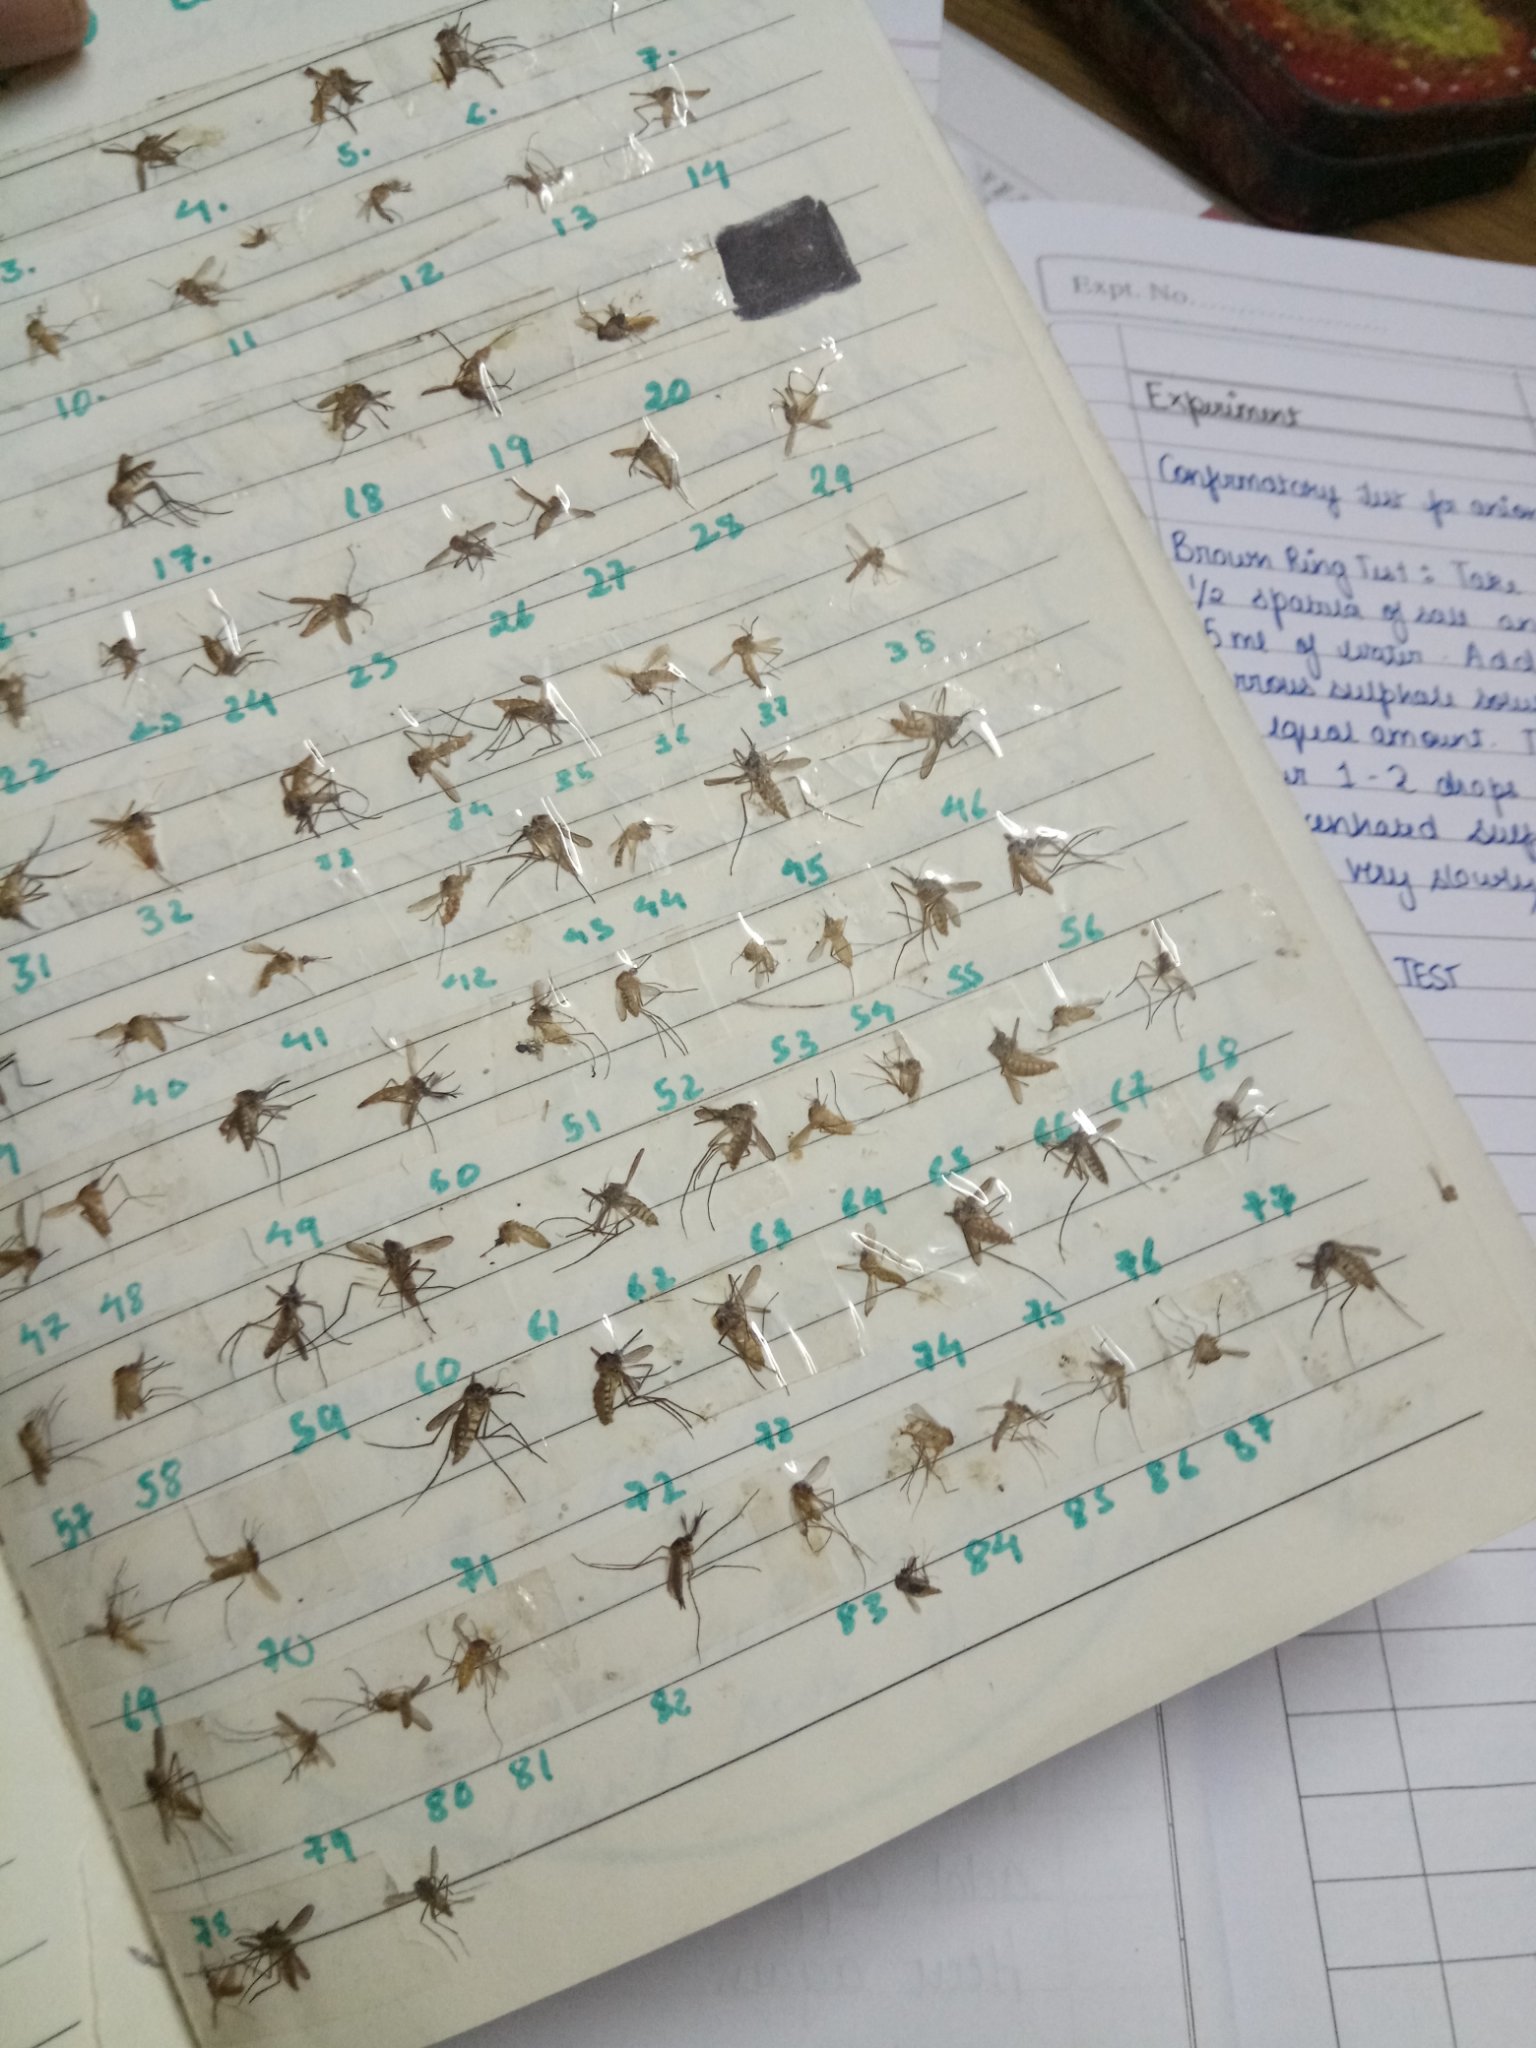 7.
6.
5.
4.
3.
14
13
12
11
10.
20
19
18
17.
29
28
27
26
25
24
23
22
38
37
36
35
34
33
32
31
46
45
44
43
42
41
40
56
55
54
53
52
51
50
49
48
47
68
67
66
65
64
63
62
61
60
59
58
57
77
76
75
74
73
72
71
70
69
87
86
85
84
83
82
81
80
79
78
Expt. No.
Experiment
Confirmatory test for anion
Brown Ring Test: Take
1/2 spatula of salt an
5 ml of water. Add
rrous sulphate solu
equal amount. T
1-2 drops
very slowly
TEST